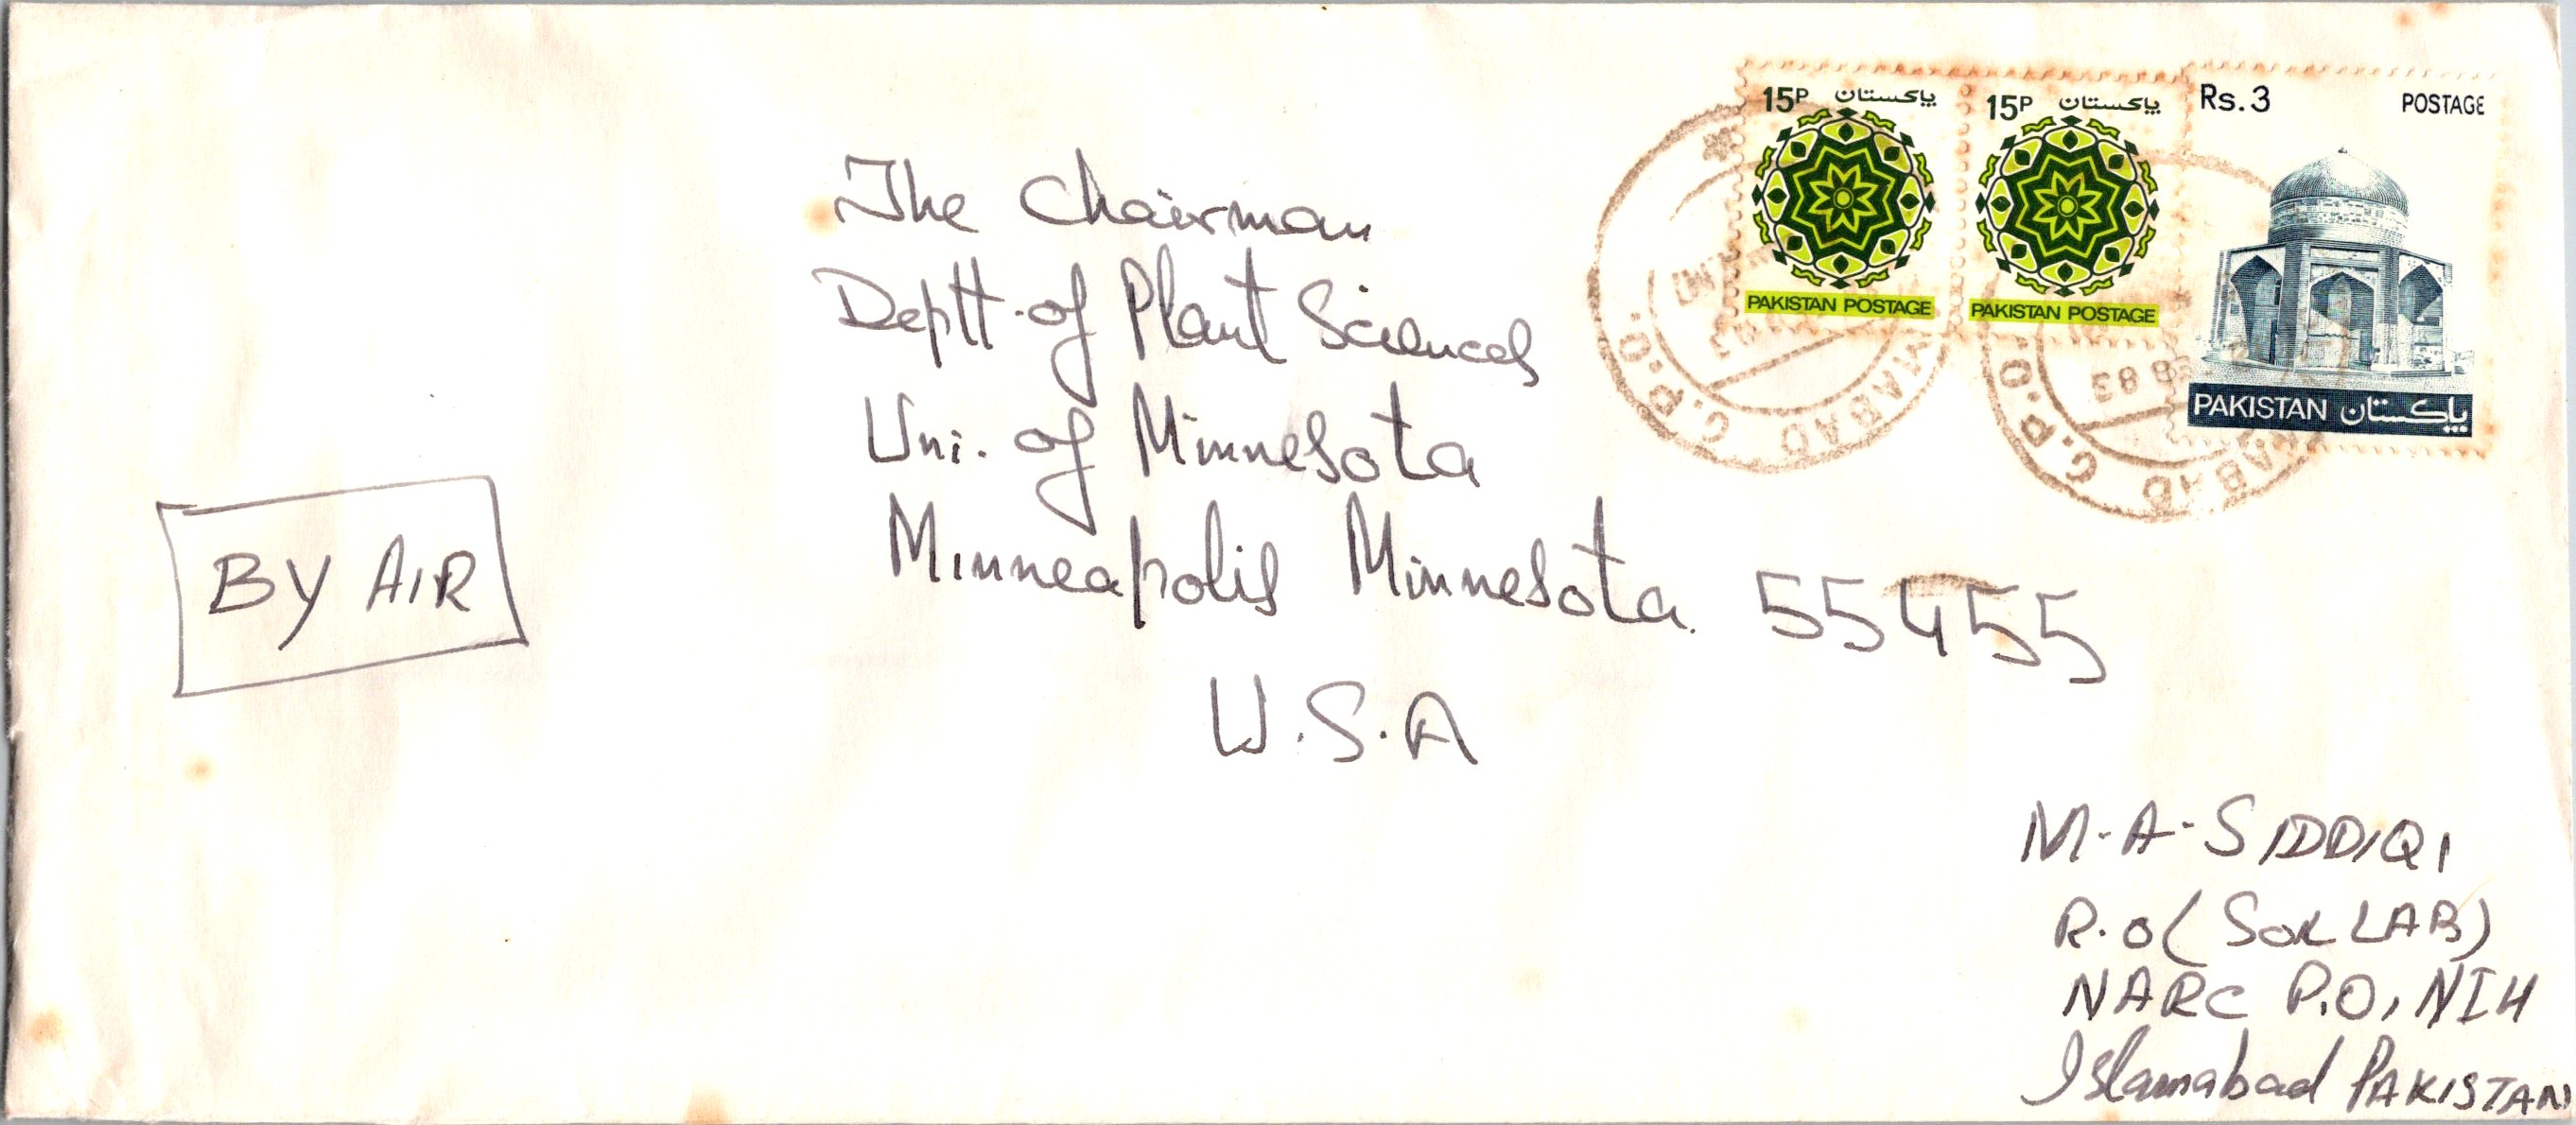 15P پاکستان
PAKISTAN POSTAGE
15P پاکستان
PAKISTAN POSTAGE
Rs.3 POSTAGE
PAKISTAN پاکستان
G.P.O.
83
G.P.O.
83
The Chairman
Deptt. of Plant Sciences
Uni. of Minnesota
Minneapolis Minnesota. 55455
U.S.A
BY AIR
M-A-SIDDIQI
R.O (SOIL LAB)
NARC P.O, NIH
Islamabad PAKISTAN